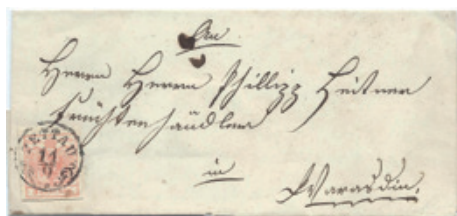 An
Herrn Herrn Phillipp Heitner
Früchtenhändler
in
Warasdin.
PETTAU
11
9